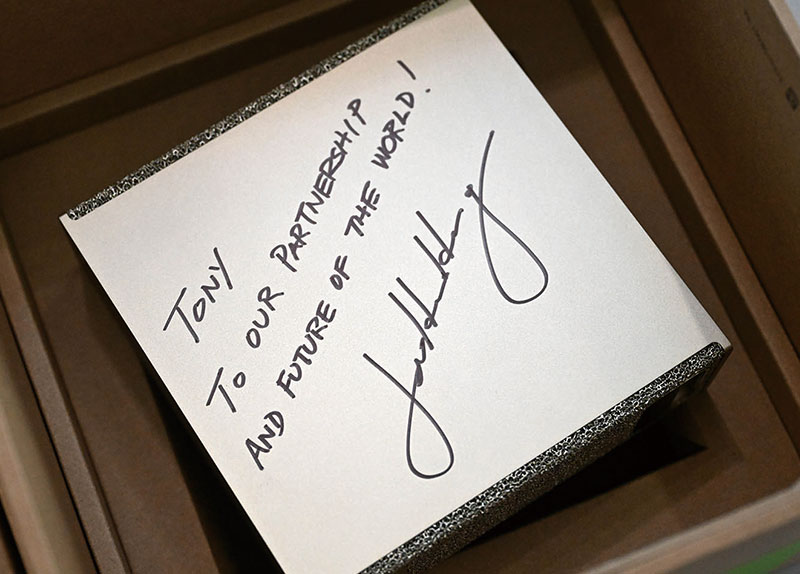 TONY
TO OUR PARTNERSHIP
AND FUTURE OF THE WORLD!